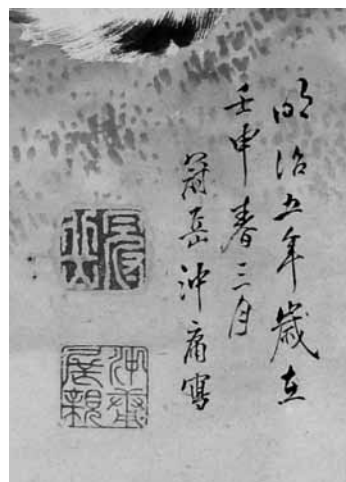 明治五年歳在
壬申春三月
冠岳沖庸寫
沖庸
展親